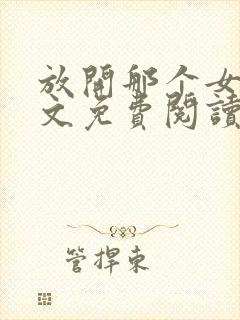 放開那个女
文免費閱讀
管捍東